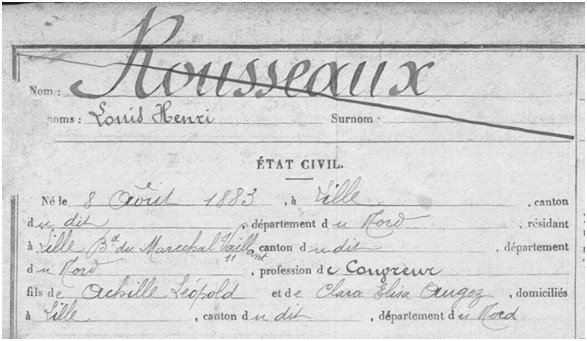 Nom : Rousseaux
noms : Louis Henri Surnom :
ÉTAT CIVIL.
Né le 8 Août 1883, à Lille, canton
du dit, département du Nord, résidant
à Lille Bd du Marechal Vaillant 11, canton du dit, département
du Nord, profession de Couvreur
fils de Achille Léopold et de Clara Elisa Augez, domiciliés
à Lille, canton du dit, département du Nord